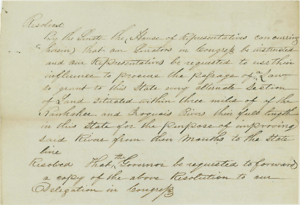 Resolved
By the Senate the House of Representatives concurring
herein, that our Senators in Congress be instructed
and our Representatives be requested to use their
influence to procure the passage of a Law
to grant to this State any alternate Section
of Land situated within three miles of the
Kankakee and Iroquois Rivers their full length
in this State for the purpose of improving
said Rivers from their Mouths to the State
line
Resolved that the Governor be requested to forward
a copy of the above Resolution to our
Delegation in Congress